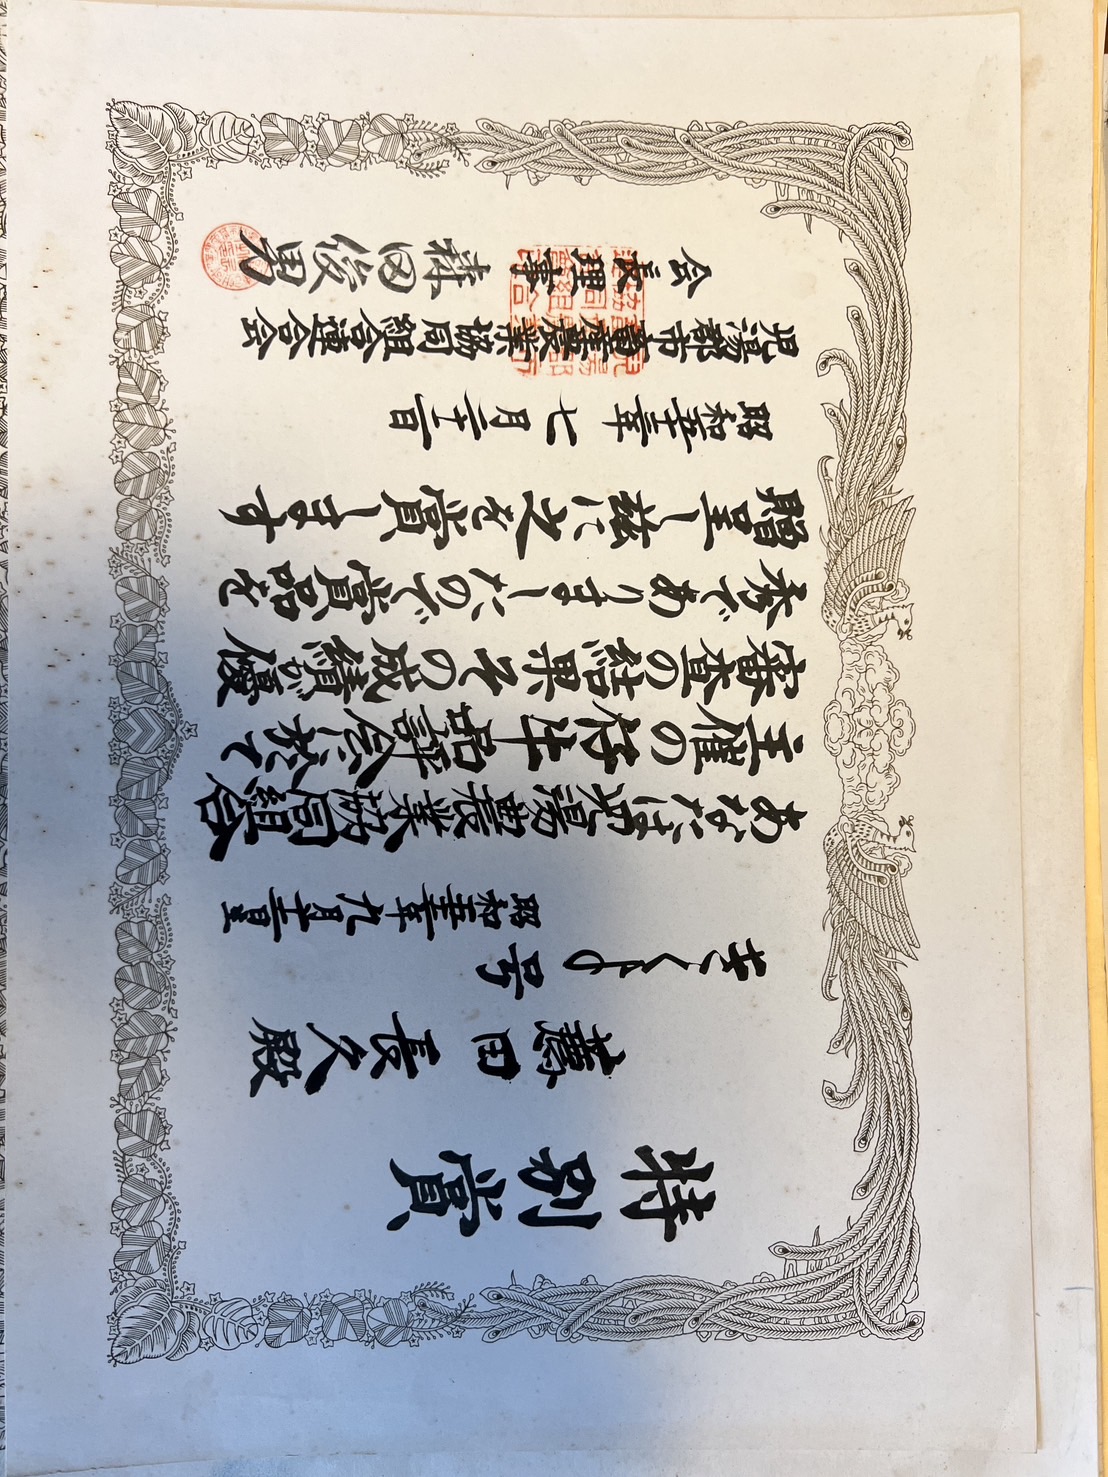 特別賞
藤田長久殿
きくよ号
昭和五十三年九月十二日生
あなたは児湯農業協同組合
主催の仔牛品評会に於て
審査の結果その成績が優
秀でありましたので賞品を
贈呈し茲に之を賞します
昭和五十三年七月二十二日
児湯郡市畜産農業協同組合連合会
会長理事 森田俊男